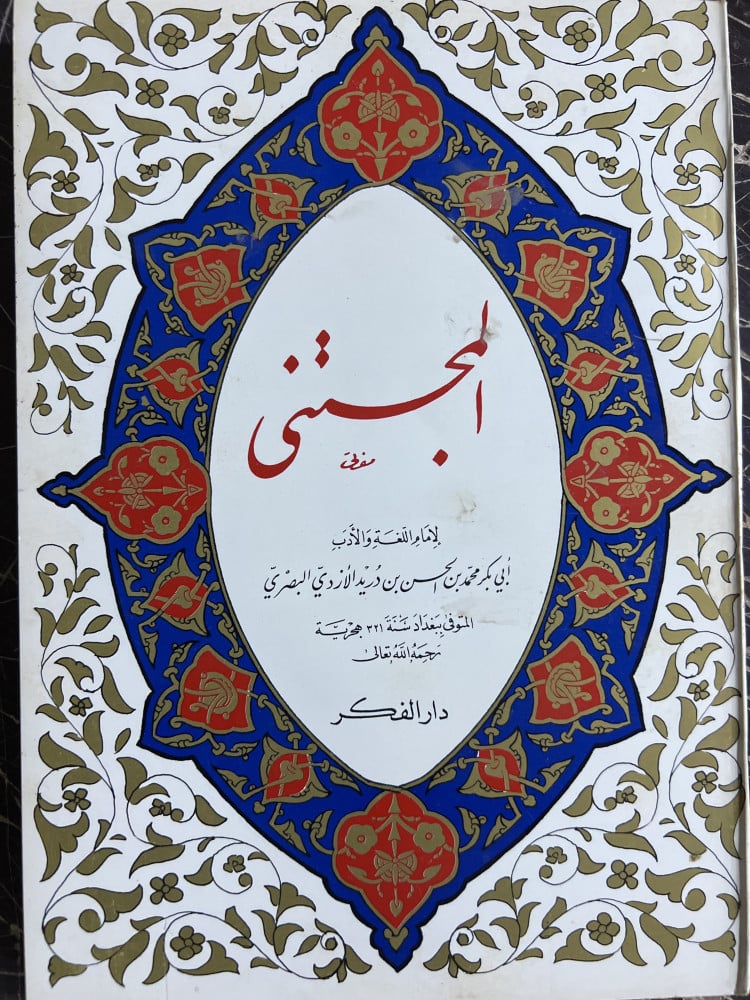 المجتنى
لِإمَامِ اللّغَةِ وَالأَدَبِ
أبي بكر محمد بن الحسن بن دُرَيْد الأزديّ البصْريّ
المتوفى ببغدَاد سَنَة ٣٢١ هجريَّة
رَحِمَهُ اللّهُ تعَالىٰ
دار الفكر